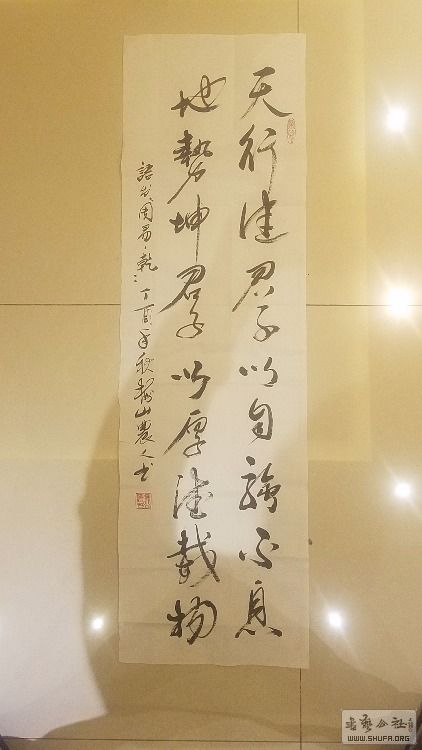 天行健君子以自強不息
地勢坤君子以厚德載物
語出周易·乾：丁酉年秋山農人书
書藝公社
WWW.SHUFA.ORG